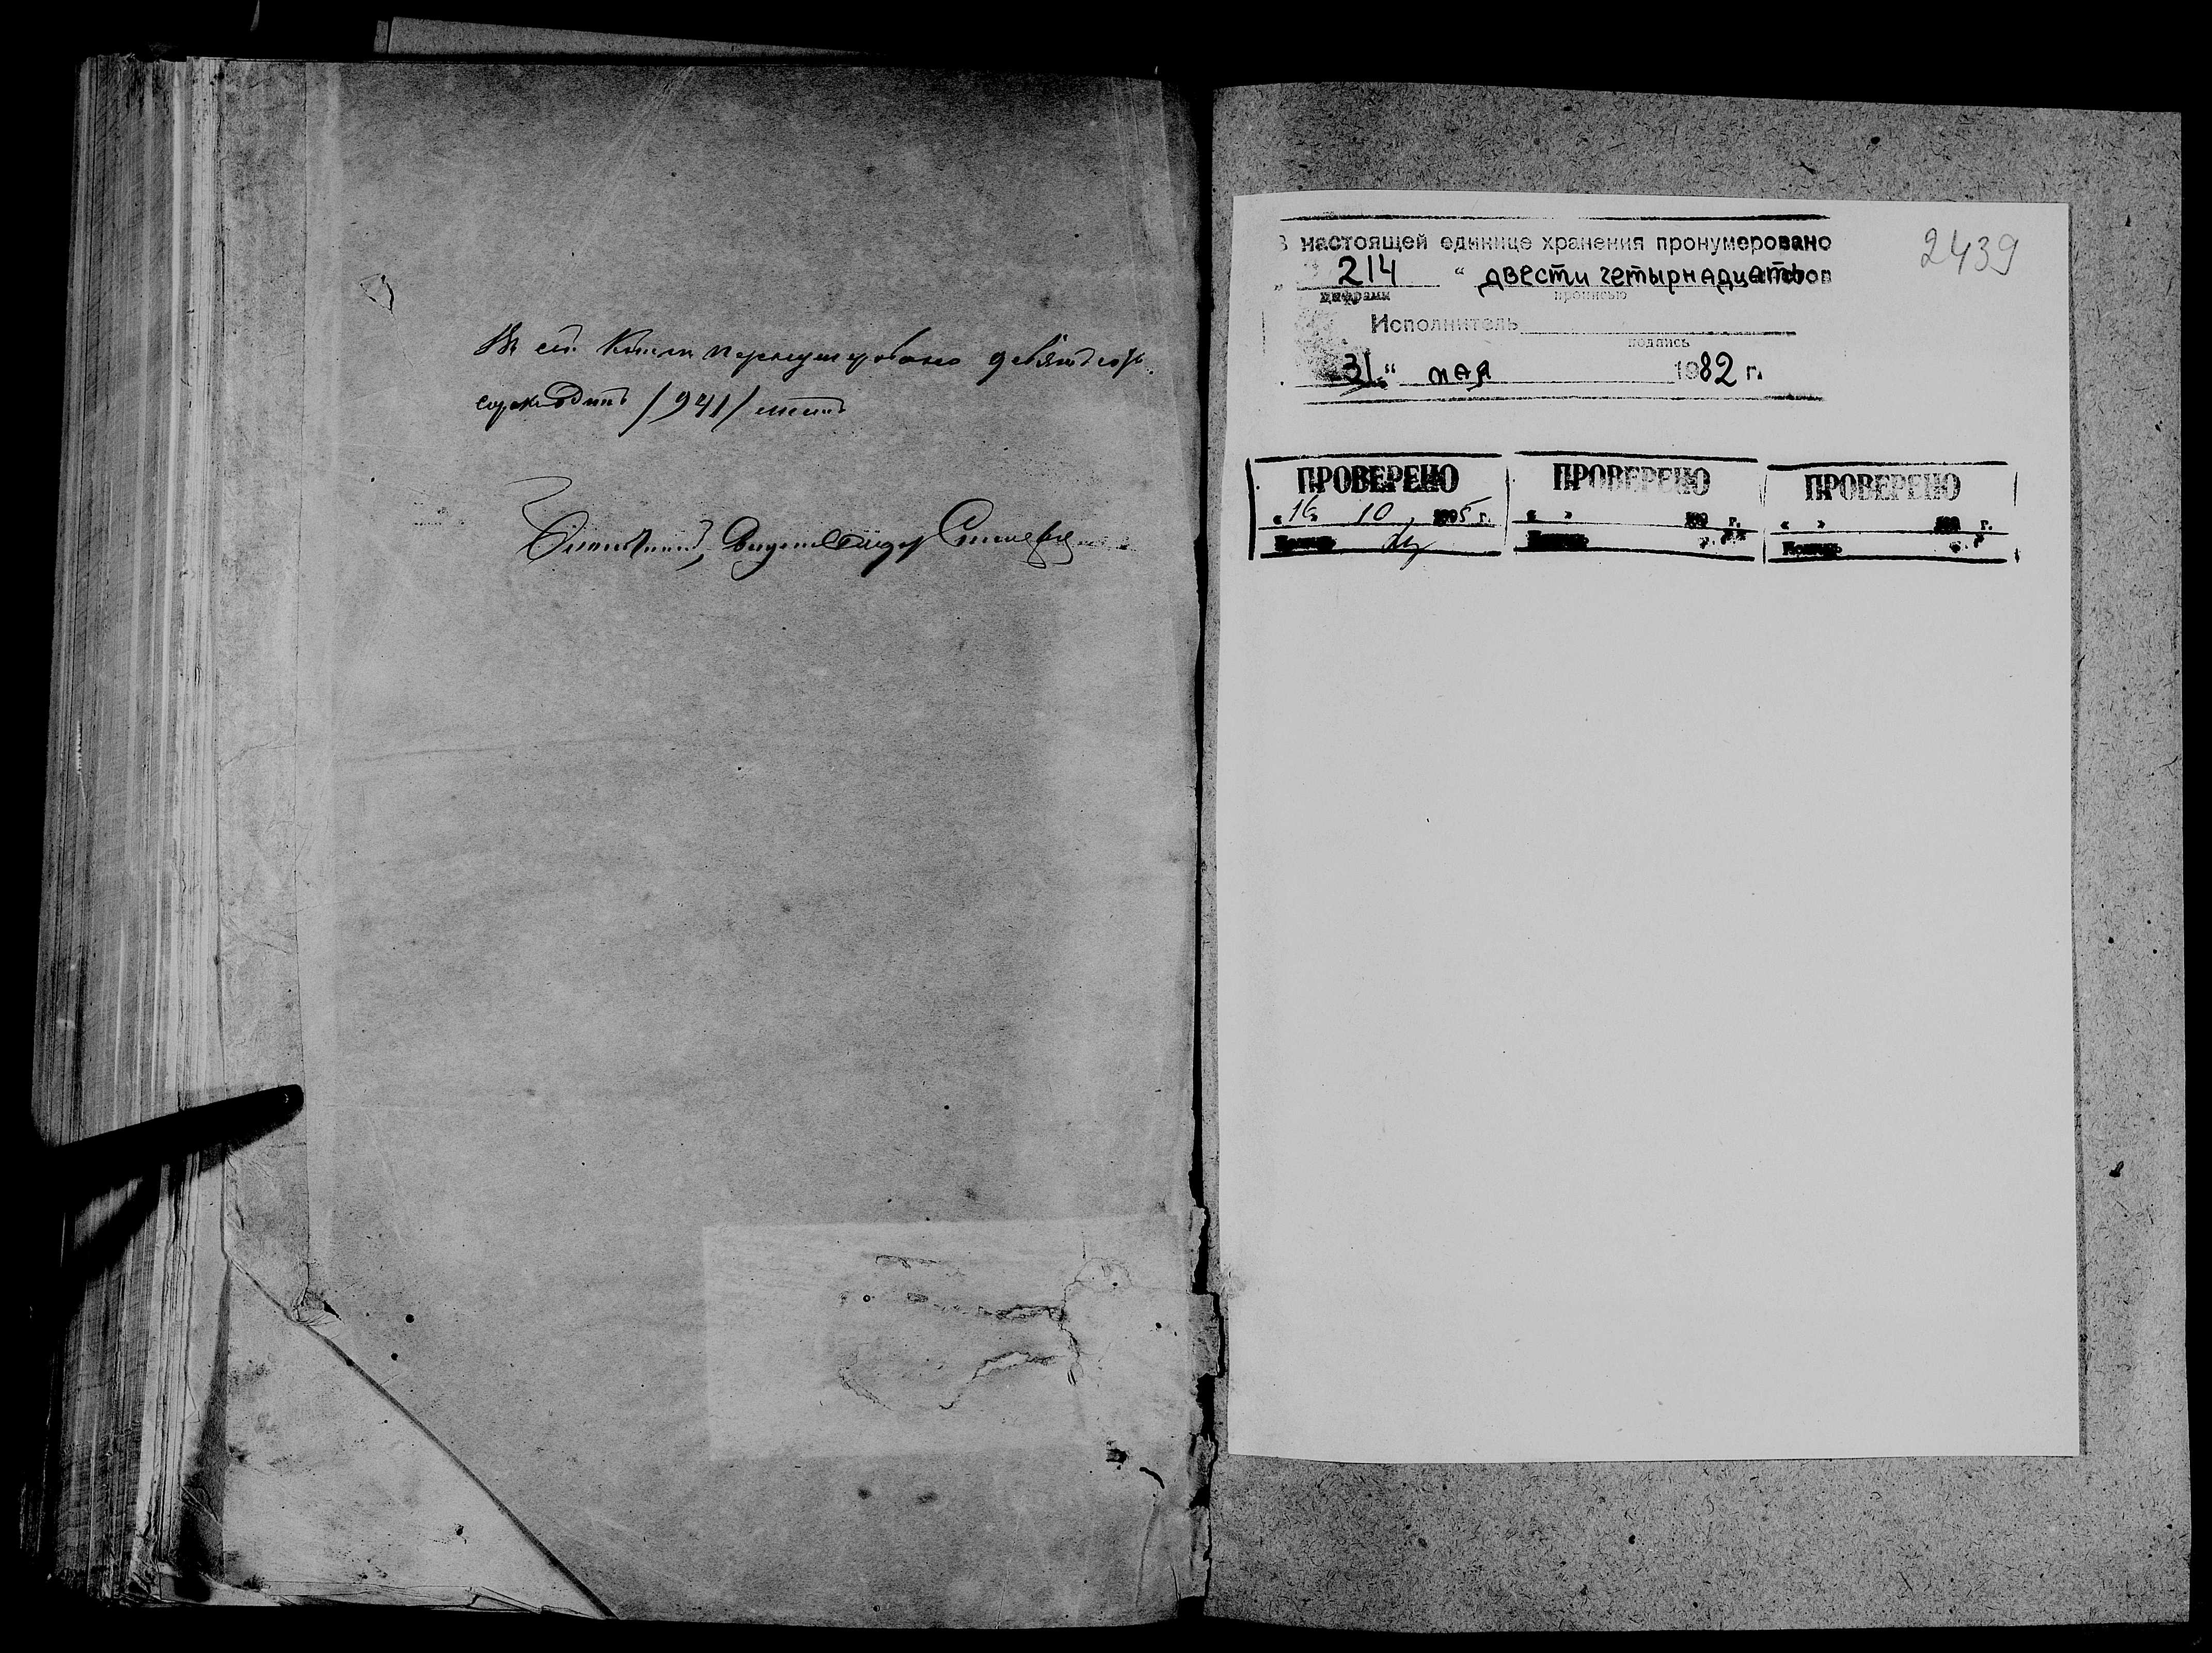 Въ сей Книгѣ перенумеровано девятьсотъ
сорокъодинъ /941/ листъ
В настоящей единице хранения пронумеровано
214 " двести четырнадцать
цифрами прописью
Исполнитель
подпись
"31" мая 1982 г.
2439
ПРОВЕРЕНО
« 16 » 10 1995 г.
ПРОВЕРЕНО
« » 199 г.
ПРОВЕРЕНО
« » 199 г.